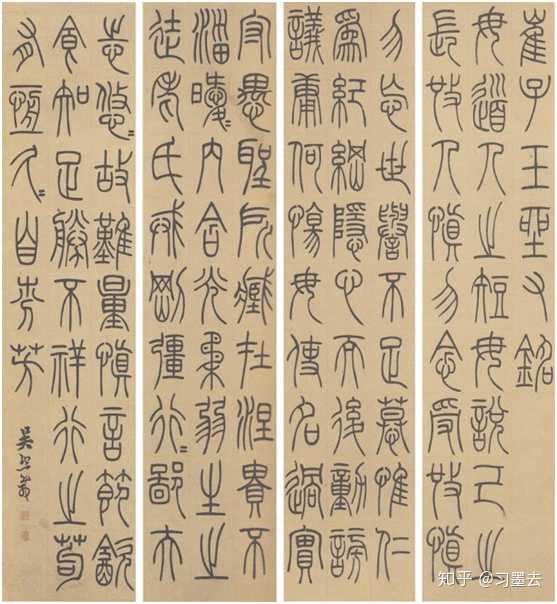 崔子玉坐右銘
毋道人之短毋說己之
長施人慎勿念受施慎
勿忘世譽不足慕惟仁
為紀綱隱心而後動謗
議庸何傷毋使名過實
守愚聖所臧在涅貴不
淄曖〻內含光柔弱生之
徒老氏戒剛彊行〻鄙夫
志悠〻故難量慎言節飲
食知足勝不祥行之苟
有恆久〻自芬芳
吳熙載
知乎 @习墨去